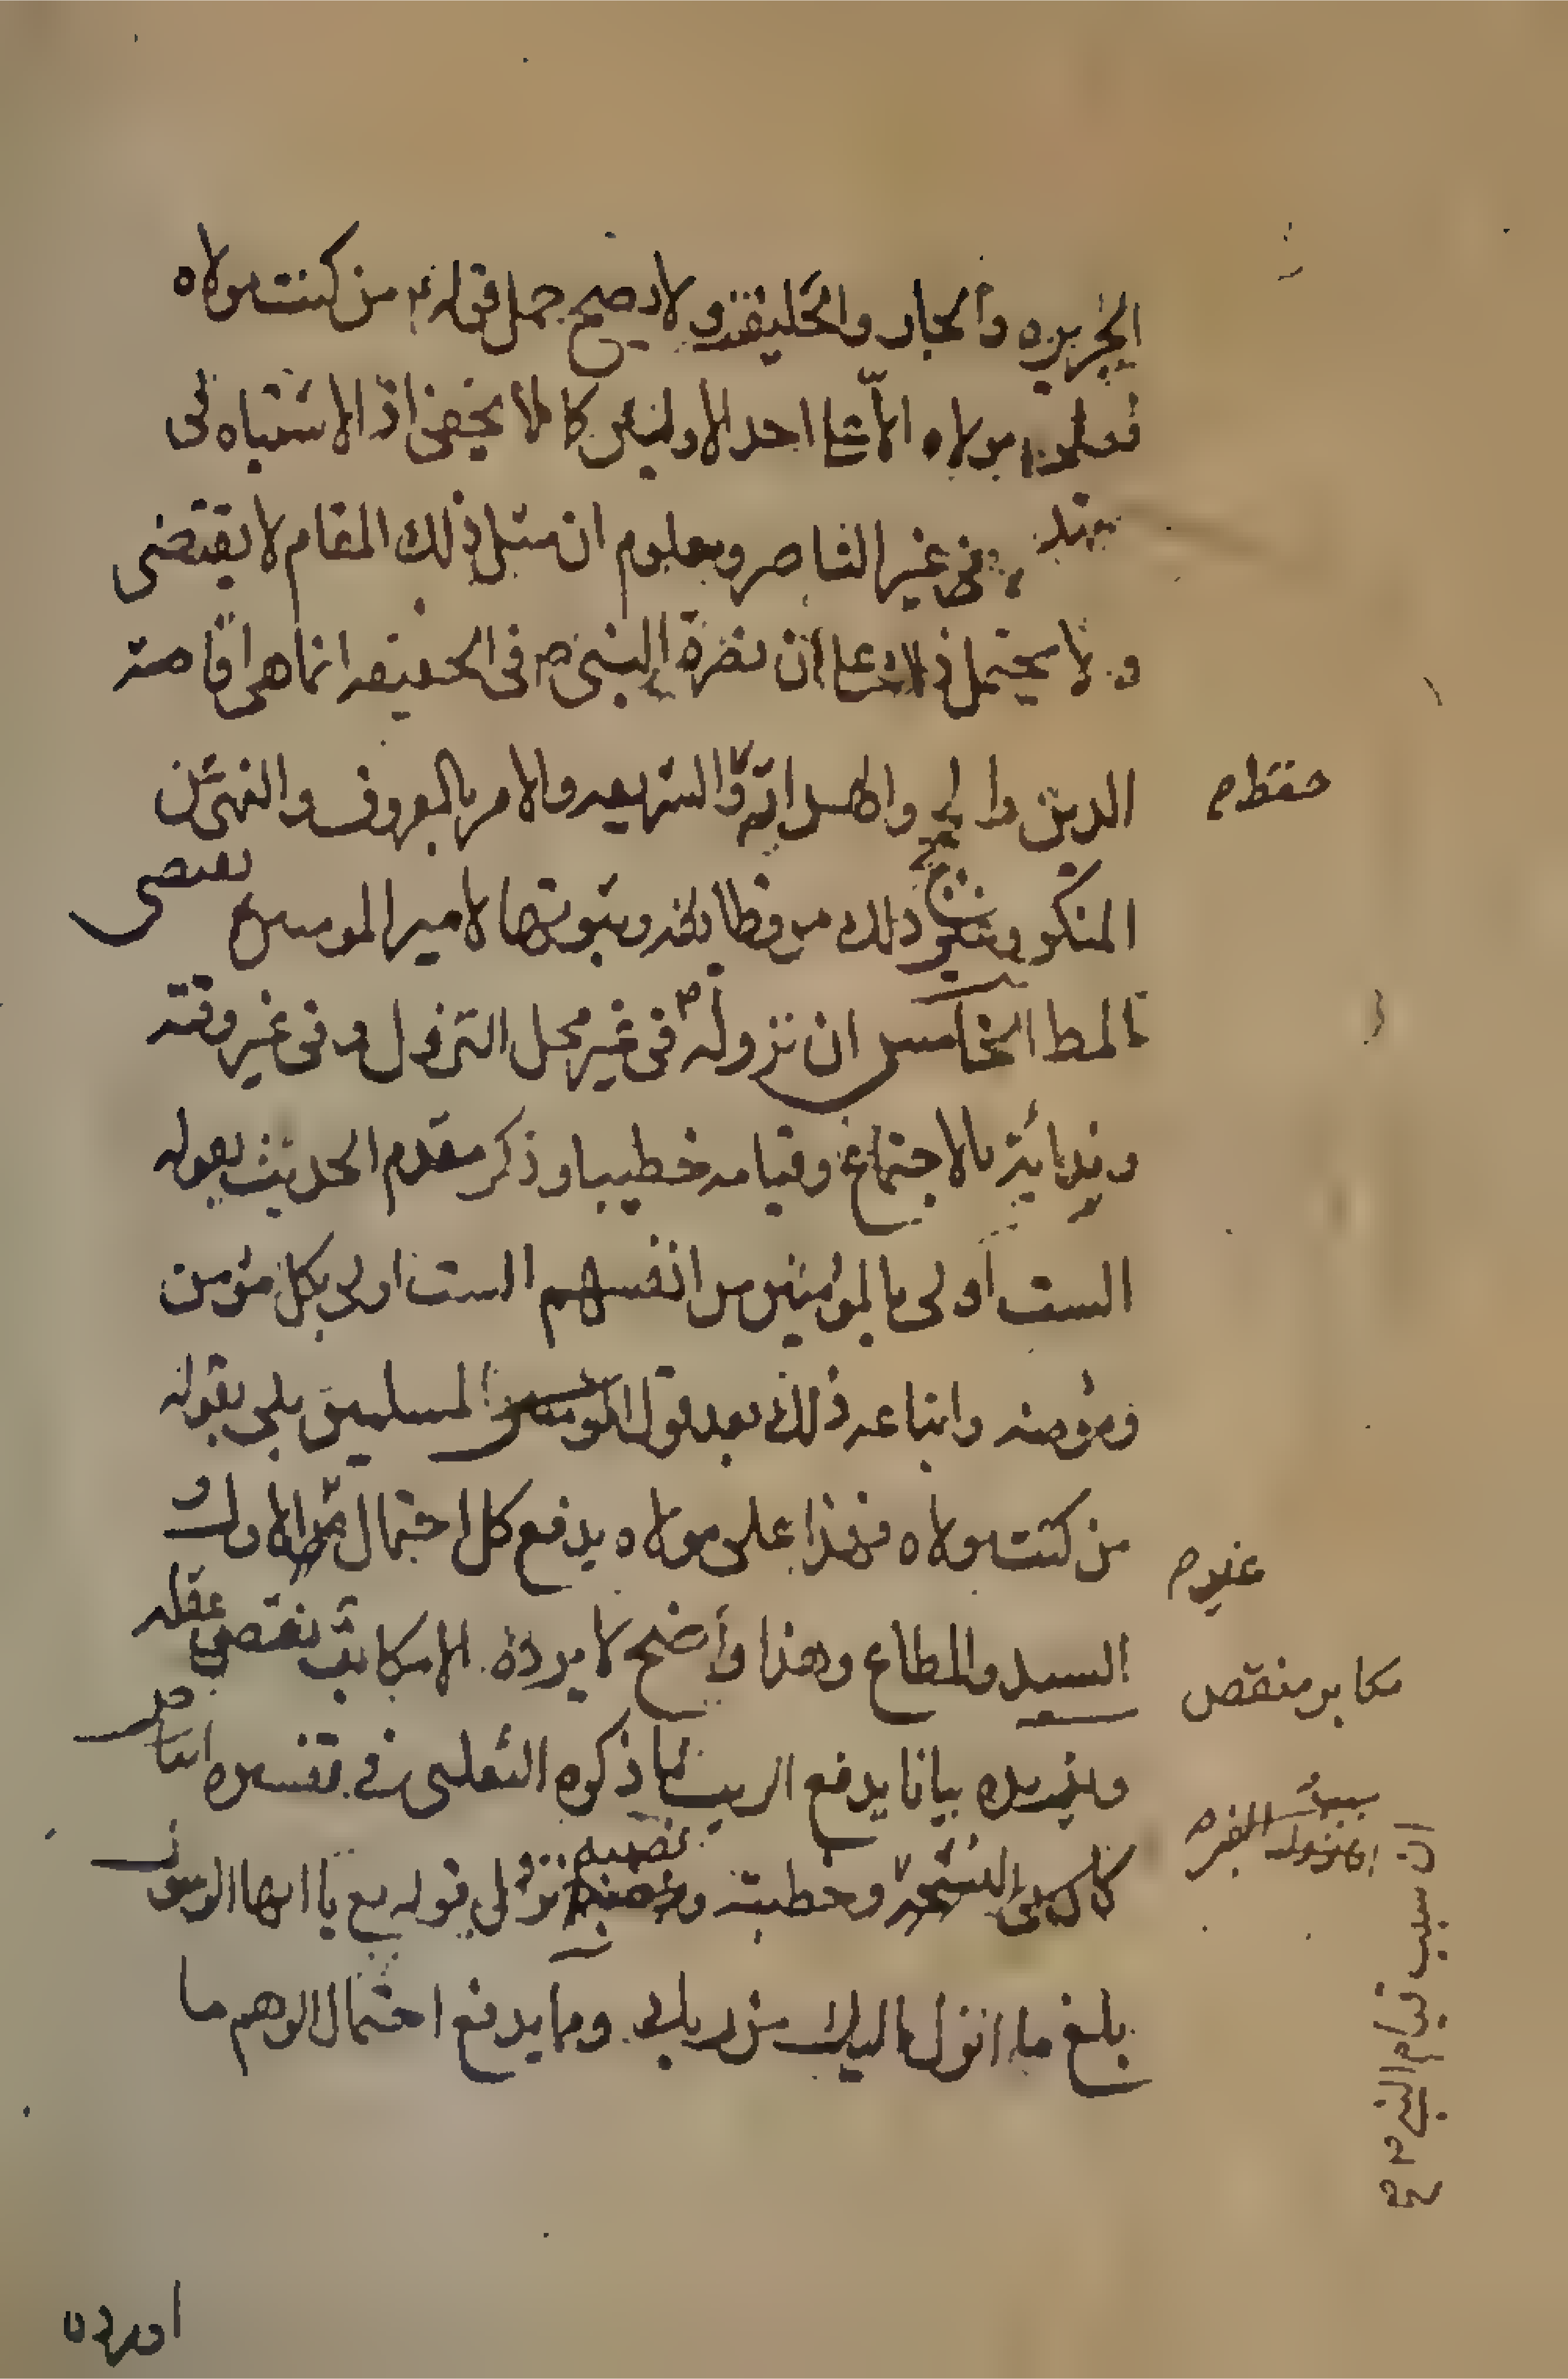 الجريره والجار والخليفة ولا يصح حمل قوله ع من كنت مولاه
فعلي مولاه الا على احد الاولين كما لا يخفى اذ الاشتباه في
في غير الناصر ومعلوم ان مثل ذلك المقام لا يقتضى
و لا يحتمل ذلك على ان نصرة النبي ص فى الحقيقه انما هى اقامته
الدين والهداية والشريعه والامر بالمعروف والنهى عن
المنكر ونحو ذلك من وظايفه وثبوتها لامير المومنين يقتضى
المط الخامس ان نزوله ص فى غير محل النزول وفى غير وقته
وندائه بالاجتماع وقيامه خطيبا وذكر مقدم الحديث بقوله
الست اولى بالمؤمنين من انفسهم الست اولى بكل مؤمن
ومؤمنه واتباعه ذلك بعد قول المسلمين بلى بقوله
من كنت مولاه فهذا على مولاه يدفع كل احتمال الاول و
السيد والمطاع وهذا واضح لا يرده الا مكابر نقص عقله
ويزيده بيانا يدفع الريب ما ذكره الثعلبى فى تفسيره
وخطبته نزول قوله تع يا ايها الرسول
بلغ ما انزل اليك من ربك ومما يدفع احتمال الوهم ما
حفظ م
غيره م
مكابر منقص
سبب
ان سبب قيام النبي ص
اورده